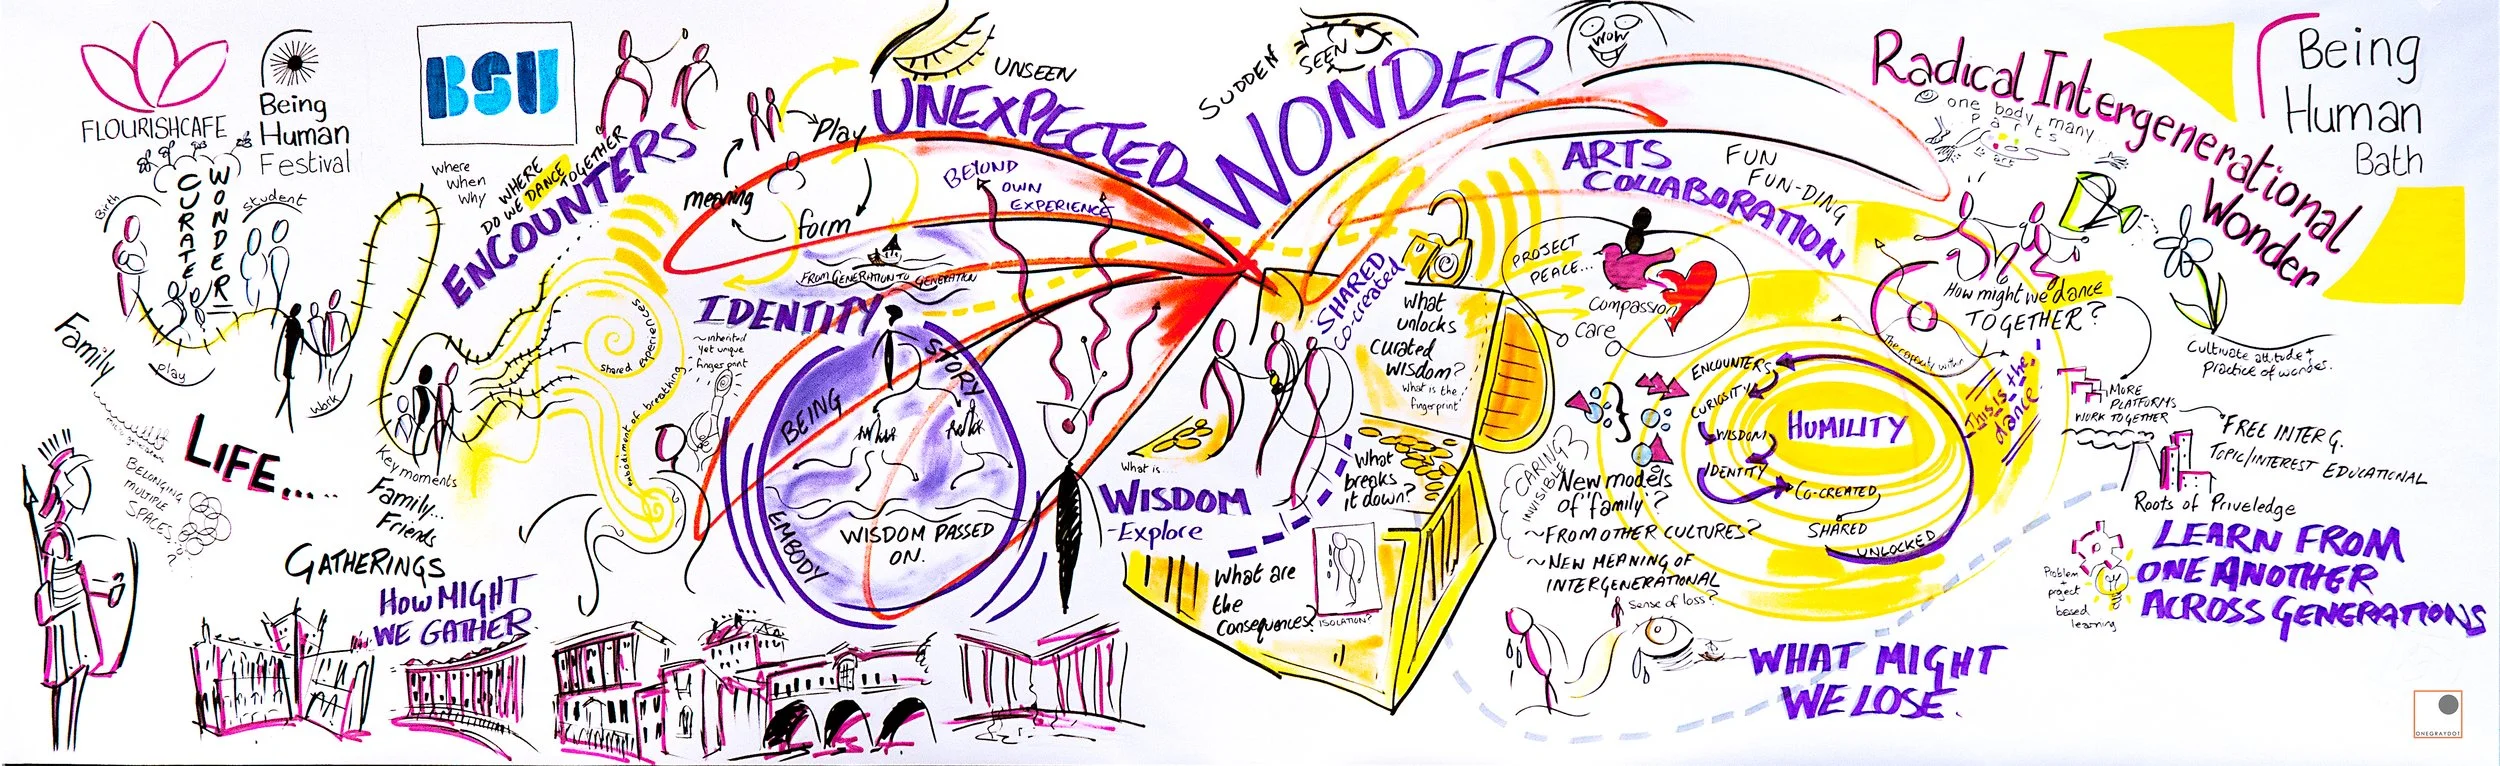 FLOURISHCAFE
Being
Human
Festival
BSU
CURATE
WONDER
Birth
Student
Play
Work
Family
LIFE...
BELONGING
MULTIPLE
SPACES
?
where
when
why
WHERE
DO WE DANCE TOGETHER
ENCOUNTERS
Key moments
Family...
Friends
GATHERINGS
HOW MIGHT
WE GATHER
shared experiences
embodiment of breathing
meaning
Play
form
UNSEEN
UNEXPECTED
WONDER
SUDDEN
SEEN
WOW
BEYOND
OWN
EXPERIENCE
FROM GENERATION TO GENERATION
IDENTITY
~inherited
yet unique
fingerprint
BEING
STORY
EMBODY
WISDOM PASSED
ON.
What is....
WISDOM
-Explore
SHARED
co-created
What
unlocks
curated
wisdom?
What is the
fingerprint
What
breaks
it down?
What are
the
Consequences?
ISOLATION?
ARTS
COLLABORATION
FUN
FUN-DING
PROJECT
PEACE...
Compassion
Care
CARING
INVISIBLE
?
New models
of 'family'?
~FROM OTHER CULTURES?
~NEW MEANING OF
INTERGENERATIONAL
Sense of loss?
WHAT MIGHT
WE LOSE.
ENCOUNTERS
CURIOSITY
WISDOM
IDENTITY
CO-CREATED
SHARED
UNLOCKED
HUMILITY
This is the
dance
Radical Intergenerational
Wonder
one body many
parts
is art
How might we dance
TOGETHER?
Cultivate attitude +
practice of wonder.
MORE
PLATFORMS
WORK TOGETHER
FREE INTER G.
TOPIC/INTEREST EDUCATIONAL
Roots of Priveledge
Problem
+
project
based
learning
LEARN FROM
ONE ANOTHER
ACROSS GENERATIONS
Being
Human
Bath
ONEGRAYDOT